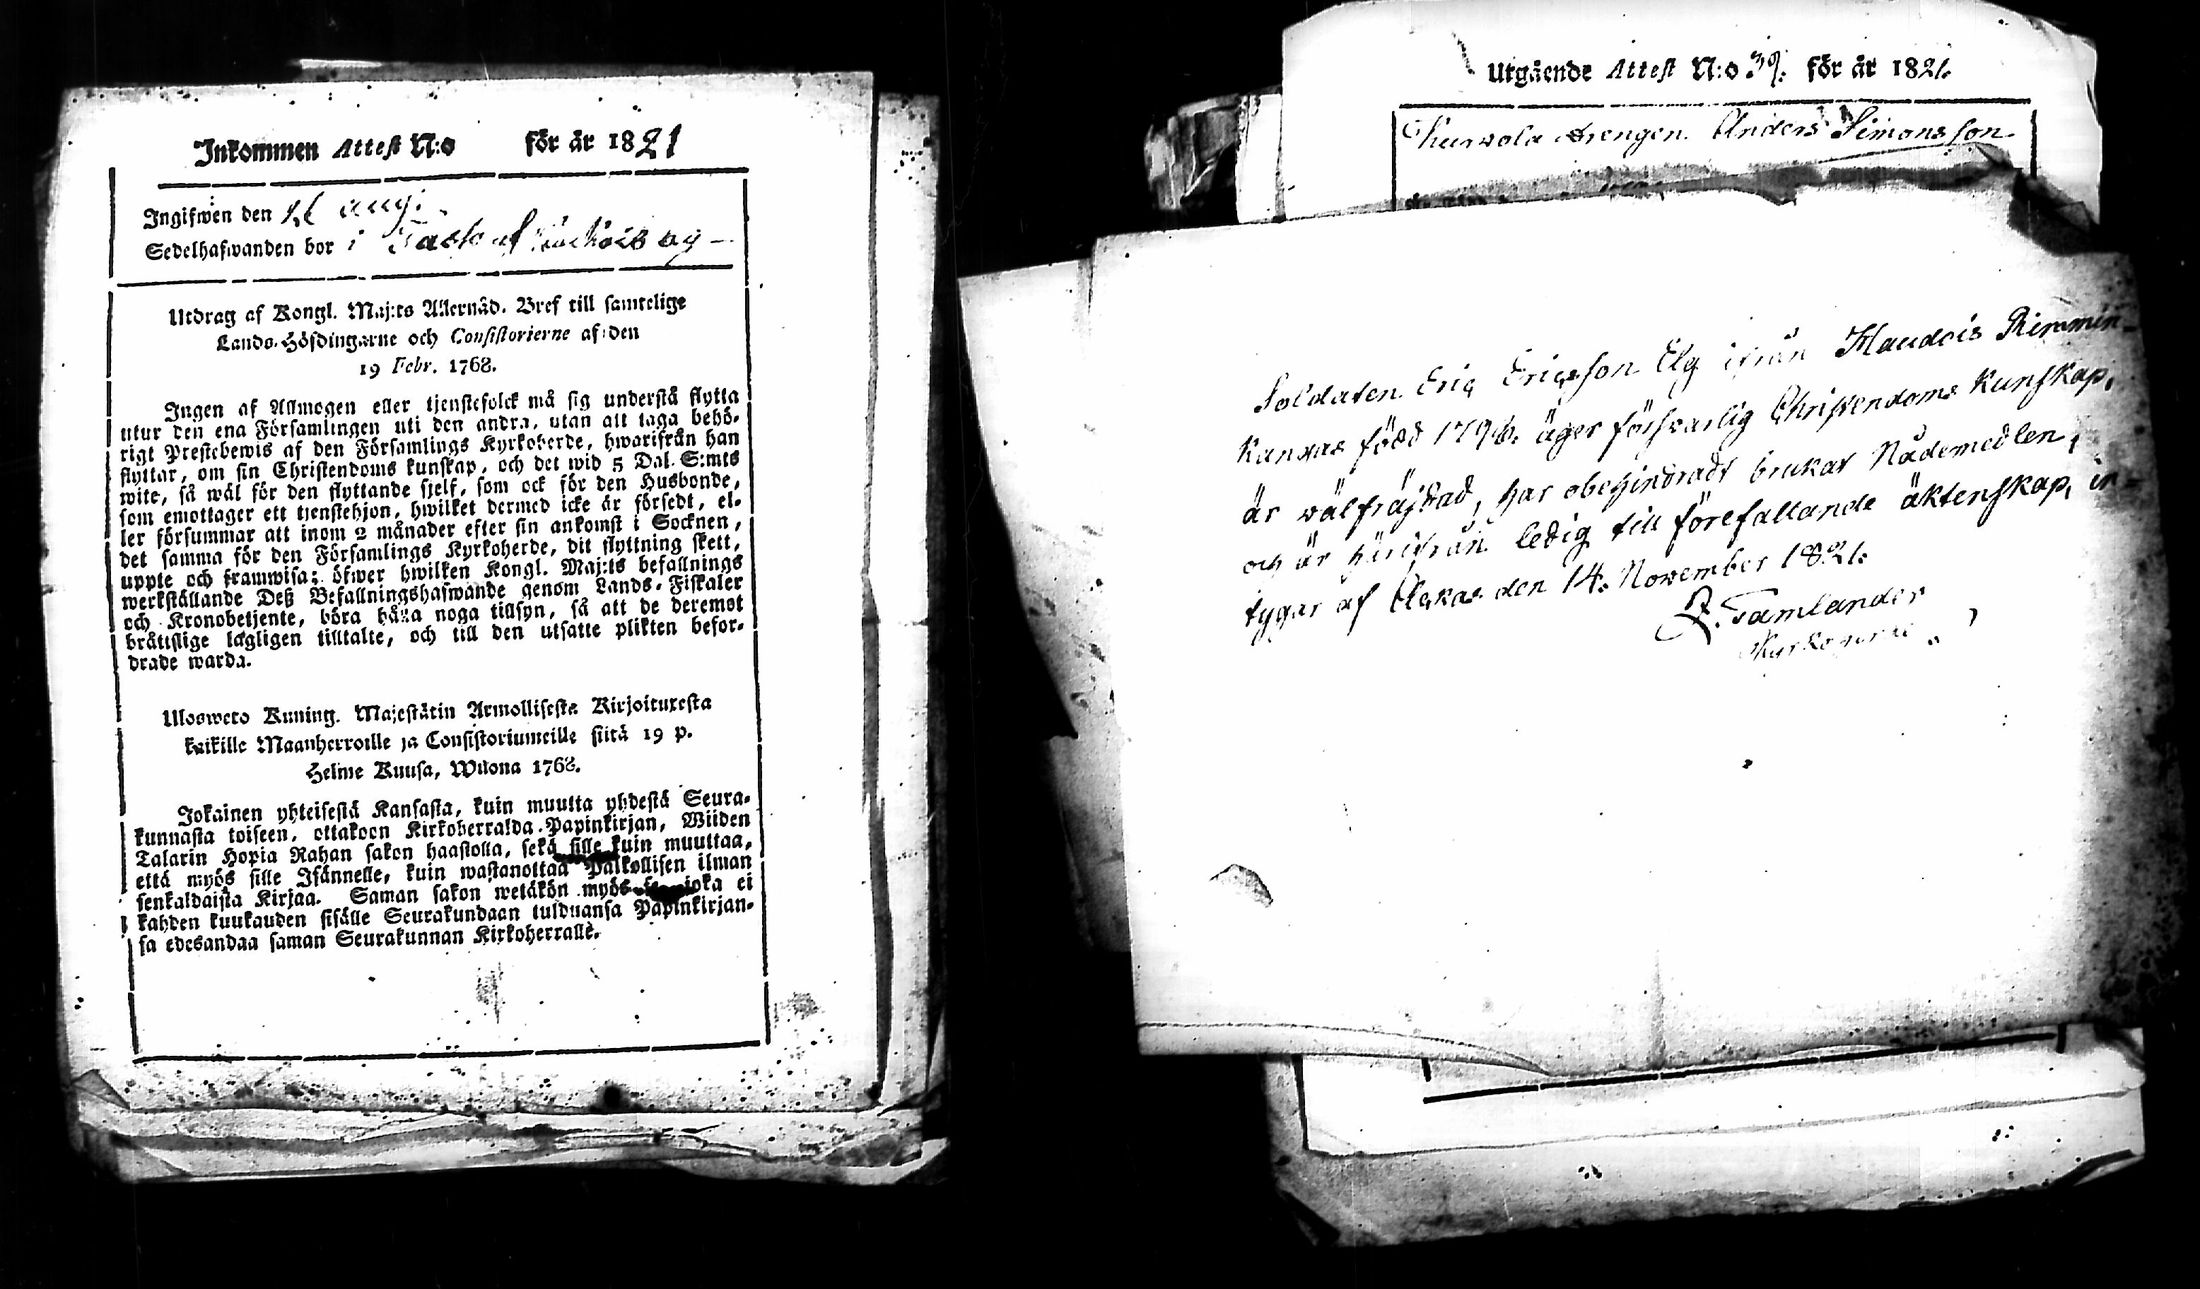 Inkommen Attest N:o för år 1821
Ingifwen den aug:
Sedelhafwanden bor i
Utdrag af Kongl. Maj:ts Allernåd. Bref till samtelige
Lands-Höfdingarne och Consistorierne af den
19 Febr. 1768.
Ingen af Allmogen eller tjenstefolck må sig understå flytta
utur den ena Församlingen uti den andra, utan att taga behö-
rigt Prestebewis af den Församlings Kyrkoherde, hwarifrån han
flyttar, om sin Christendoms kunskap, och det wid 5 Dal. S:mts
wite, så wäl för den flyttande sjelf, som ock för den Husbonde,
som emottager ett tjenstehjon, hwilket dermed icke är försedt, el-
ler försummar att inom 2 månader efter sin ankomst i Socknen,
det samma för den Församlings Kyrkoherde, dit flyttning skett,
uppte och framwisa; öfwer hwilken Kongl. Maj:ts befallnings
werkställande Deß Befallningshafwande genom Lands-Fiskaler
och Kronobetjente, böra hålla noga tillsyn, så att de deremot
bråttslige lagligen tilltalte, och till den utsatte plikten befor-
drade warda.
Ulosweto Kuning. Majestätin Armollisesta Kirjoituxesta
kaikille Maanherroille ja Consistoriumeille siitä 19 p.
Helme Kuusa, Wuona 1768.
Jokainen yhteisestä Kansasta, kuin muutta yhdestä Seura-
kunnasta toiseen, ottakoon Kirkoherralda Papinkirjan, Wiiden
Talarin Hopia Rahan sakon haastolla, sekä sille kuin muuttaa,
että myös sille Isännelle, kuin wastanottaa Palkollisen ilman
senkaldaista Kirjaa. Saman sakon wetäkön myös joka ei
kahden kuukauden sisälle Seurakundaan tulduansa Papinkirjan-
sa edesandaa saman Seurakunnan Kirkoherralle.
Utgående Attest N:o 39. för år 1821.
Drengen Anders Simonsson
Soldaten Eric Ericsson Elg ifrån Haudois Rimmin-
kangas född 179 äger förswarlig Christendoms Kunskap,
är wälfräjdad, har obehindradt brukat Nådemedlen,
och är härifrån ledig till förefallande äktenskap, in-
tygar af Askas den 14. November 1821.
Z. Tamlander
Kyrkoherde